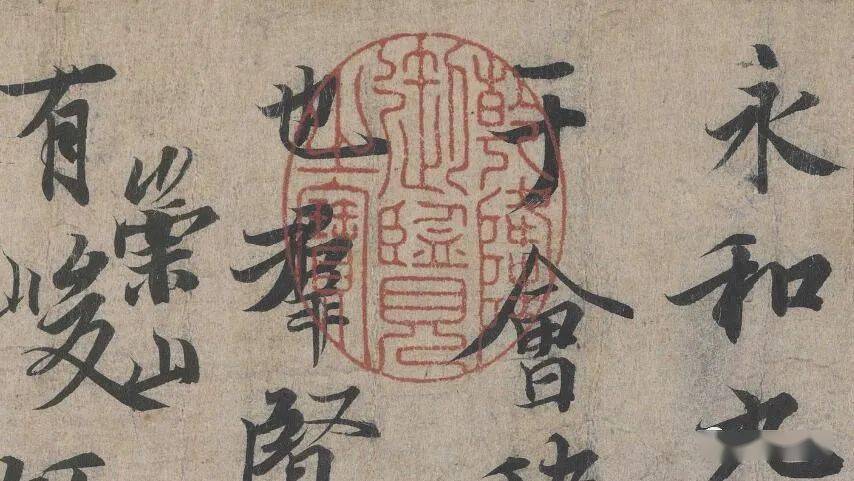 永和九
于會
也羣賢
有崇山峻
乾隆
御覽
之寶